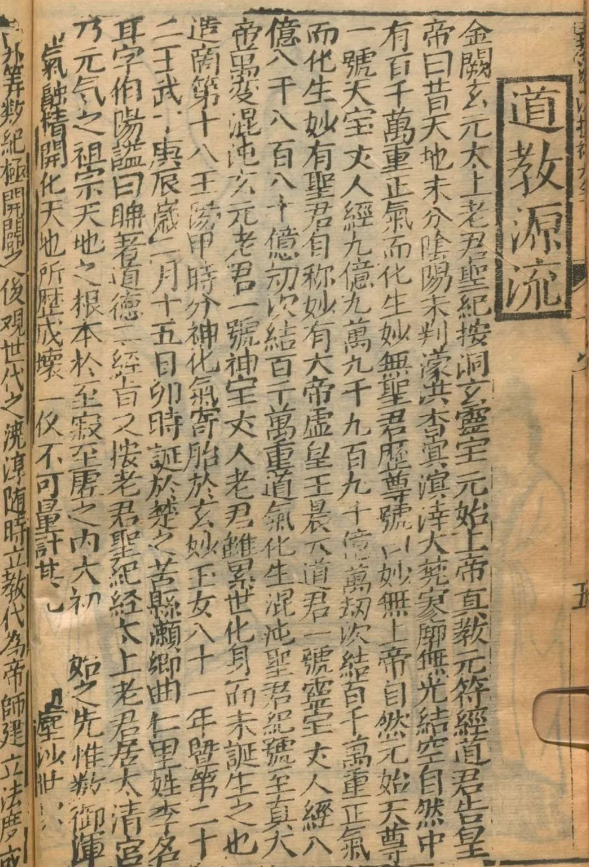 道教源流
金闕玄元太上老君聖紀按洞玄靈宝元始上帝真教元符經道君告皇
帝曰昔天地未分陰陽未判濛洪杳冥溟涬大梵寥廓無光結空自然中
有百千萬重正氣而化生妙無聖君歷尊號曰妙無上帝自然元始天尊
一號天宝丈人經九億九萬九千九百九十億萬刼次結百千萬重正氣
而化生妙有聖君自称妙有大帝虛皇玉晨大道君一號靈宝丈人經八
億八千八百八十億刼次結百千萬重道氣化生混沌聖君紀號至真大
帝萬変混沌玄元老君一號神宝丈人老君雖累世化身而未誕生之也
造商第十八王陽甲時分神化氣寄胎於玄妙玉女八十一年暨第二十
二王武丁庚辰歲二月十五日卯時誕於楚之苦縣瀬鄉曲仁里姓李名
耳字伯陽謚曰聃著道德二經旨之按老君聖紀経太上老君居太清宮
乃元气之祖宗天地之根本於至寂至虛之内大初 始之先惟數御運
氣融精開化天地所歷成壞 仪不可量計其 塵沙世
外筭数紀極開闢之後观世代之澆淳随時立教代為帝師建立法度